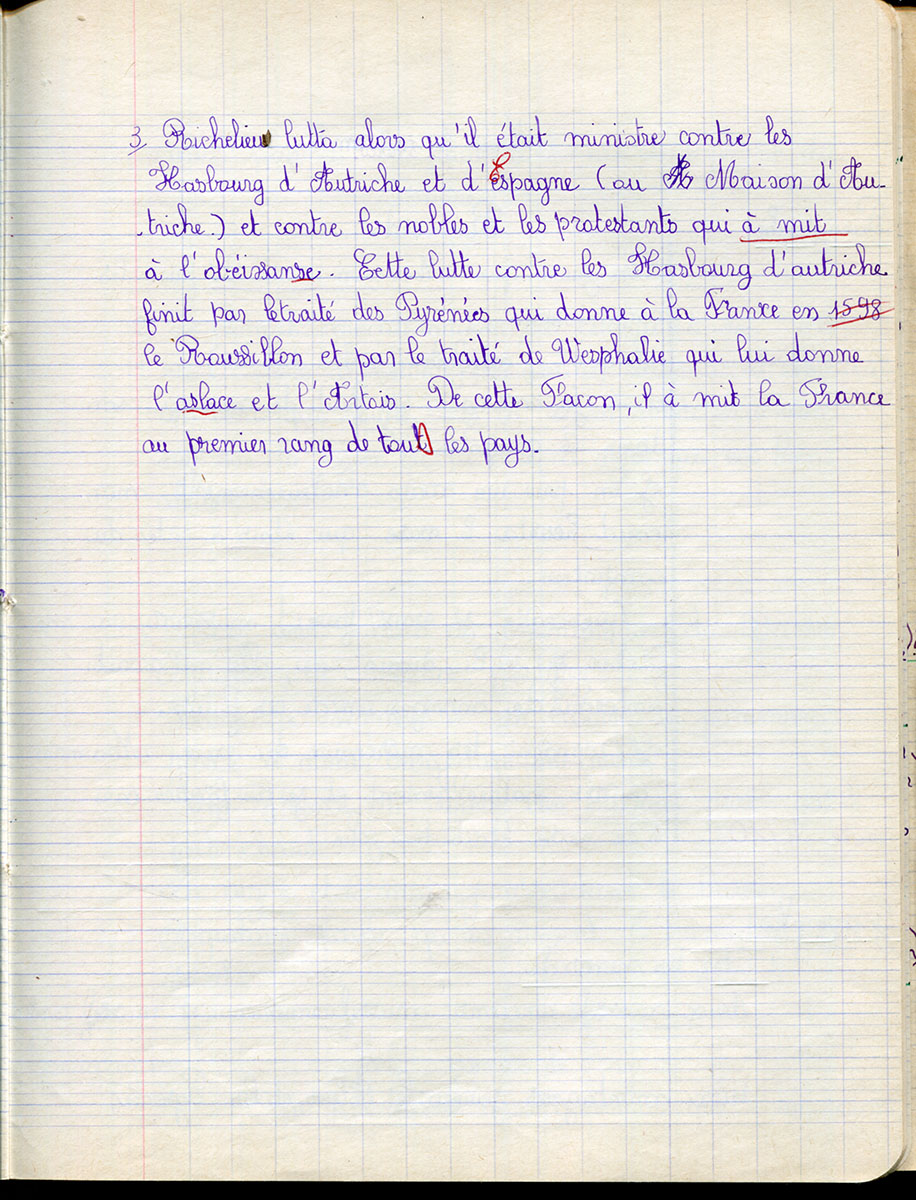 3 Richelieu lutta alors qu'il était ministre contre les
Hasbourg d'Autriche et d'Espagne (au Maison d'Au-
-triche.) et contre les nobles et les protestants qui à mit
à l'obéissanse. Cette lutte contre les Hasbourg d'autriche
finit par letraité des Pyrénées qui donne à la France en 1598
le Roussillon et par le traité de Wesphalie qui lui donne
l'aslace et l'Artois. De cette Facon, il à mit la France
au premier rang de tout les pays.